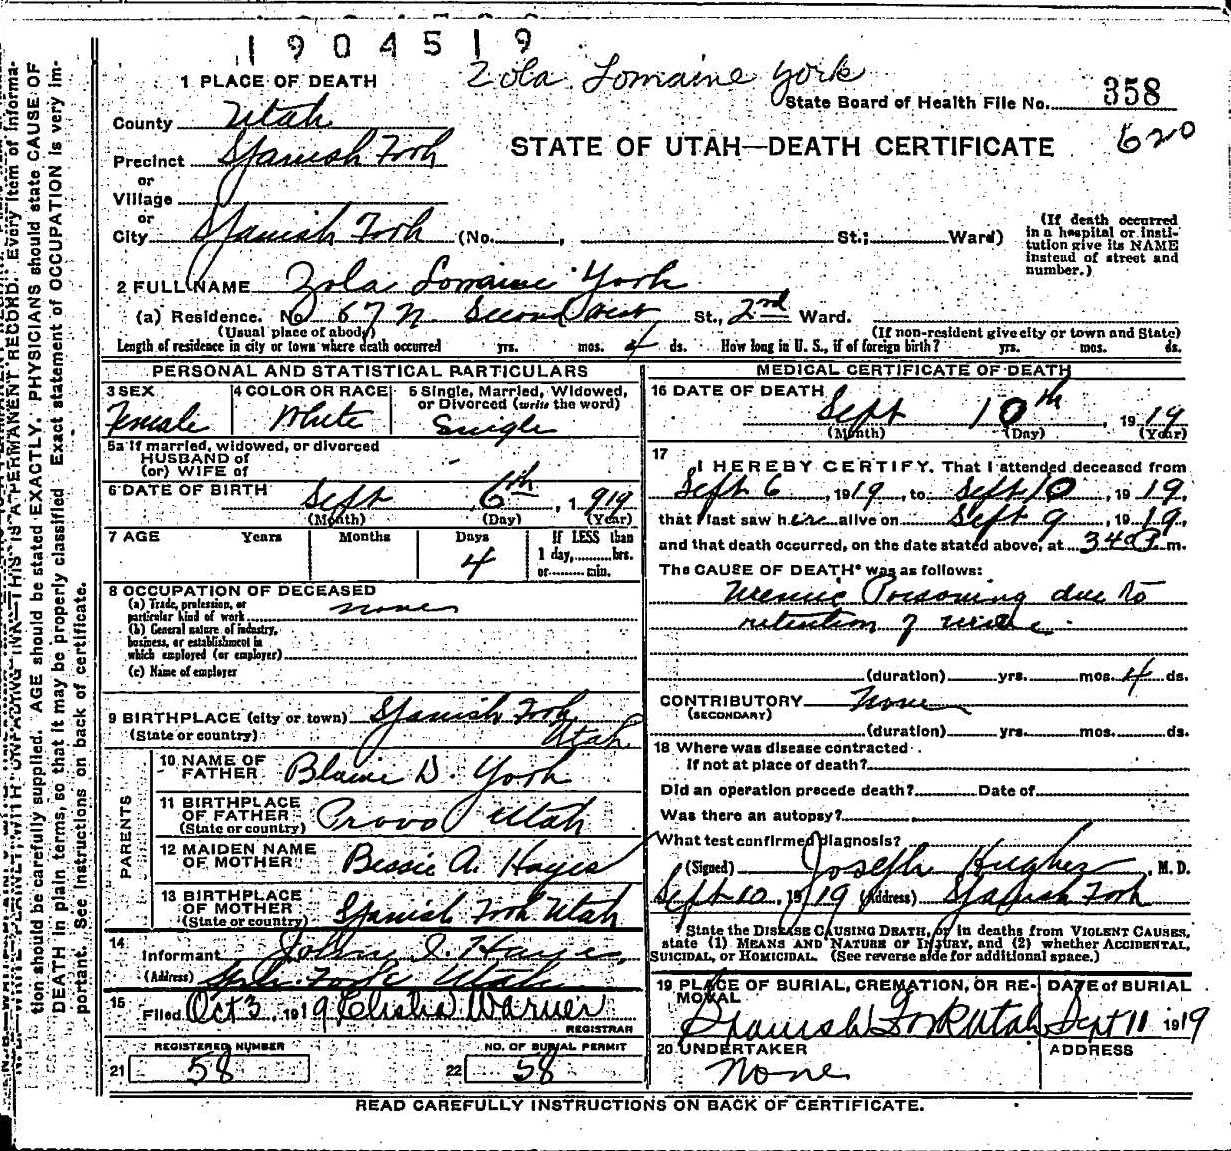 1904519
Zola Lorraine York
1 PLACE OF DEATH
State Board of Health File No. 358
620
County Utah
STATE OF UTAH—DEATH CERTIFICATE
Precinct Spanish Fork
or
Village
or
City Spanish Fork (No. , St.; Ward)
(If death occurred in a hospital or institution give its NAME instead of street and number.)
2 FULL NAME Zola Lorraine York
(a) Residence. No. 67 N Second West St., 2nd Ward.
(Usual place of abode) (If non-resident give city or town and State)
Length of residence in city or town where death occurred yrs. mos. 4 ds. How long in U. S., if of foreign birth? yrs. mos. ds.
PERSONAL AND STATISTICAL PARTICULARS
3 SEX Female
4 COLOR OR RACE White
5 Single, Married, Widowed, or Divorced (write the word) Single
5a If married, widowed, or divorced
HUSBAND of
(or) WIFE of -
6 DATE OF BIRTH Sept 6th, 1919
(Month) (Day) (Year)
7 AGE Years Months Days 4 If LESS than 1 day, hrs. or min.
8 OCCUPATION OF DECEASED
(a) Trade, profession, or particular kind of work none
(b) General nature of industry, business, or establishment in which employed (or employer)
(c) Name of employer
9 BIRTHPLACE (city or town) Spanish Fork
(State or country) Utah
PARENTS
10 NAME OF FATHER Blaine D. York
11 BIRTHPLACE OF FATHER (State or country) Provo Utah
12 MAIDEN NAME OF MOTHER Bessie A. Hayes
13 BIRTHPLACE OF MOTHER (State or country) Spanish Fork Utah
14 Informant
(Address) Fork Utah
15 Filed Oct 3, 1919 Elisha Warner
REGISTRAR
REGISTERED NUMBER
21 58
NO. OF BURIAL PERMIT
22 58
MEDICAL CERTIFICATE OF DEATH
16 DATE OF DEATH Sept 10th, 1919
(Month) (Day) (Year)
17 I HEREBY CERTIFY, That I attended deceased from
Sept 6, 1919, to Sept 10, 1919,
that I last saw her alive on Sept 9, 1919,
and that death occurred, on the date stated above, at m.
The CAUSE OF DEATH* was as follows:
Uremic Poisoning due to
retention of urine.
(duration) yrs. mos. 4 ds.
CONTRIBUTORY None
(SECONDARY)
(duration) yrs. mos. ds.
18 Where was disease contracted
If not at place of death?
Did an operation precede death? Date of
Was there an autopsy?
What test confirmed diagnosis?
(Signed) Joseph Hughes M. D.
Sept 10, 1919 (Address) Spanish Fork
* State the DISEASE CAUSING DEATH, or in deaths from VIOLENT CAUSES, state (1) MEANS AND NATURE OF INJURY, and (2) whether ACCIDENTAL, SUICIDAL, or HOMICIDAL. (See reverse side for additional space.)
19 PLACE OF BURIAL, CREMATION, OR REMOVAL Spanish Fork Utah
DATE of BURIAL Sept 11 1919
20 UNDERTAKER None
ADDRESS
READ CAREFULLY INSTRUCTIONS ON BACK OF CERTIFICATE.
THIS IS A PERMANENT RECORD. Every item of information should be carefully supplied. AGE should be stated EXACTLY. PHYSICIANS should state CAUSE OF DEATH in plain terms, so that it may be properly classified. Exact statement of OCCUPATION is very important. See instructions on back of certificate.